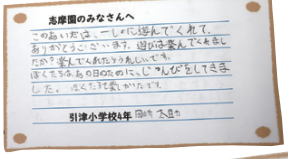 志摩園のみなさんへ
このあいだは、一しょに遊んでくれて、
ありがとうございます。遊びは楽んでくれまし
たか?楽んでくれたらうれしいです。
ぼくたちは、あの日のために、じゅんびをしてきま
した。ぼくたちも楽しかったです。
引津小学校4年